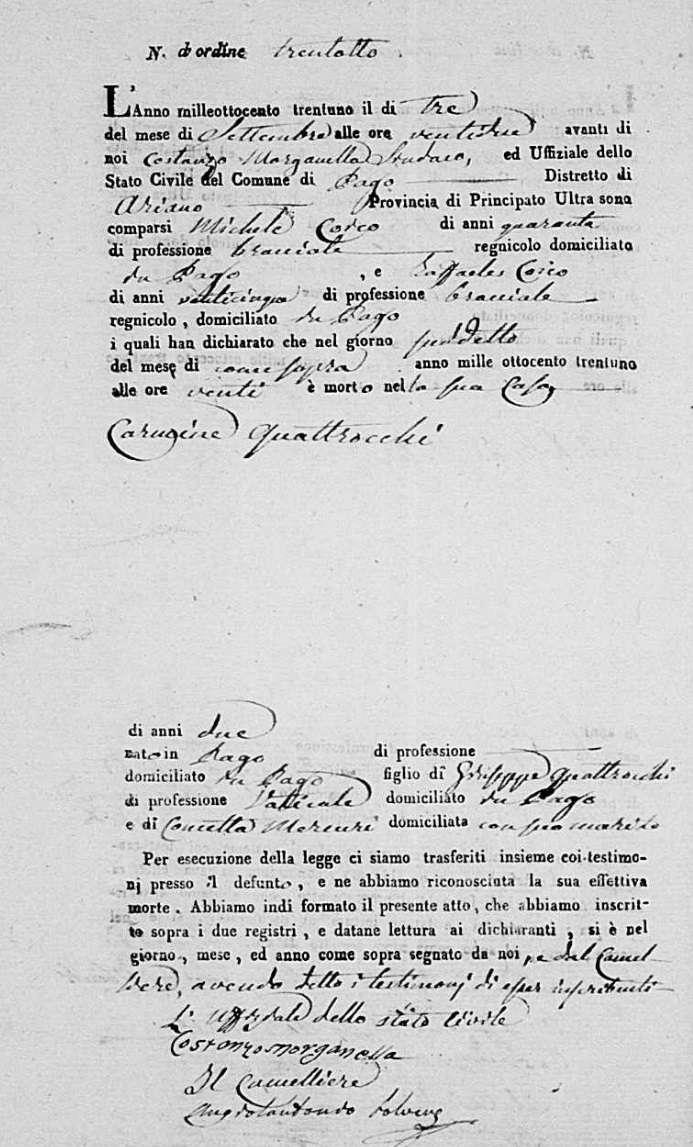 N. d'ordine trentotto.
L'Anno milleottocento trentuno il di tre
del mese di Settembre alle ore ventidue avanti di
noi Costanzo Morganella Sindaco, ed Uffiziale dello
Stato Civile del Comune di Pago Distretto di
Ariano Provincia di Principato Ultra sono
comparsi Michele Coico di anni quaranta
di professione bracciale regnicolo domiciliato
in Pago, e Raffaele Coico
di anni venticinque di professione bracciale
regnicolo, domiciliato in Pago
i quali han dichiarato che nel giorno sudetto
del mese di come sopra anno mille ottocento trentuno
alle ore venti è morto nella sua Casa
Carmine Quattrocchi
di anni due
nato in Pago di professione
domiciliato in Pago figlio di Giuseppe Quattrocchi
di professione Vaticale domiciliato in Pago
e di Concetta Mercuri domiciliata con suo marito
Per esecuzione della legge ci siamo trasferiti insieme coi testimo-
nj presso il defunto, e ne abbiamo riconosciuta la sua effettiva
morte. Abbiamo indi formato il presente atto, che abbiamo inscrit-
to sopra i due registri, e datane lettura ai dichiaranti, si è nel
giorno, mese, ed anno come sopra segnato da noi, e dal Cancel-
liere, avendo detto i testimonj di esser
L'Uffiziale dello stato Civile
Costanzo Morganella
Il Cancelliere